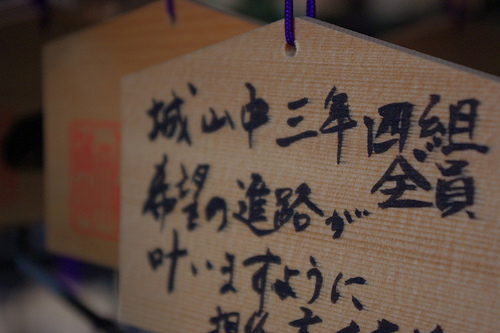 城山中三年四組
全員
希望の進路が
叶いますように